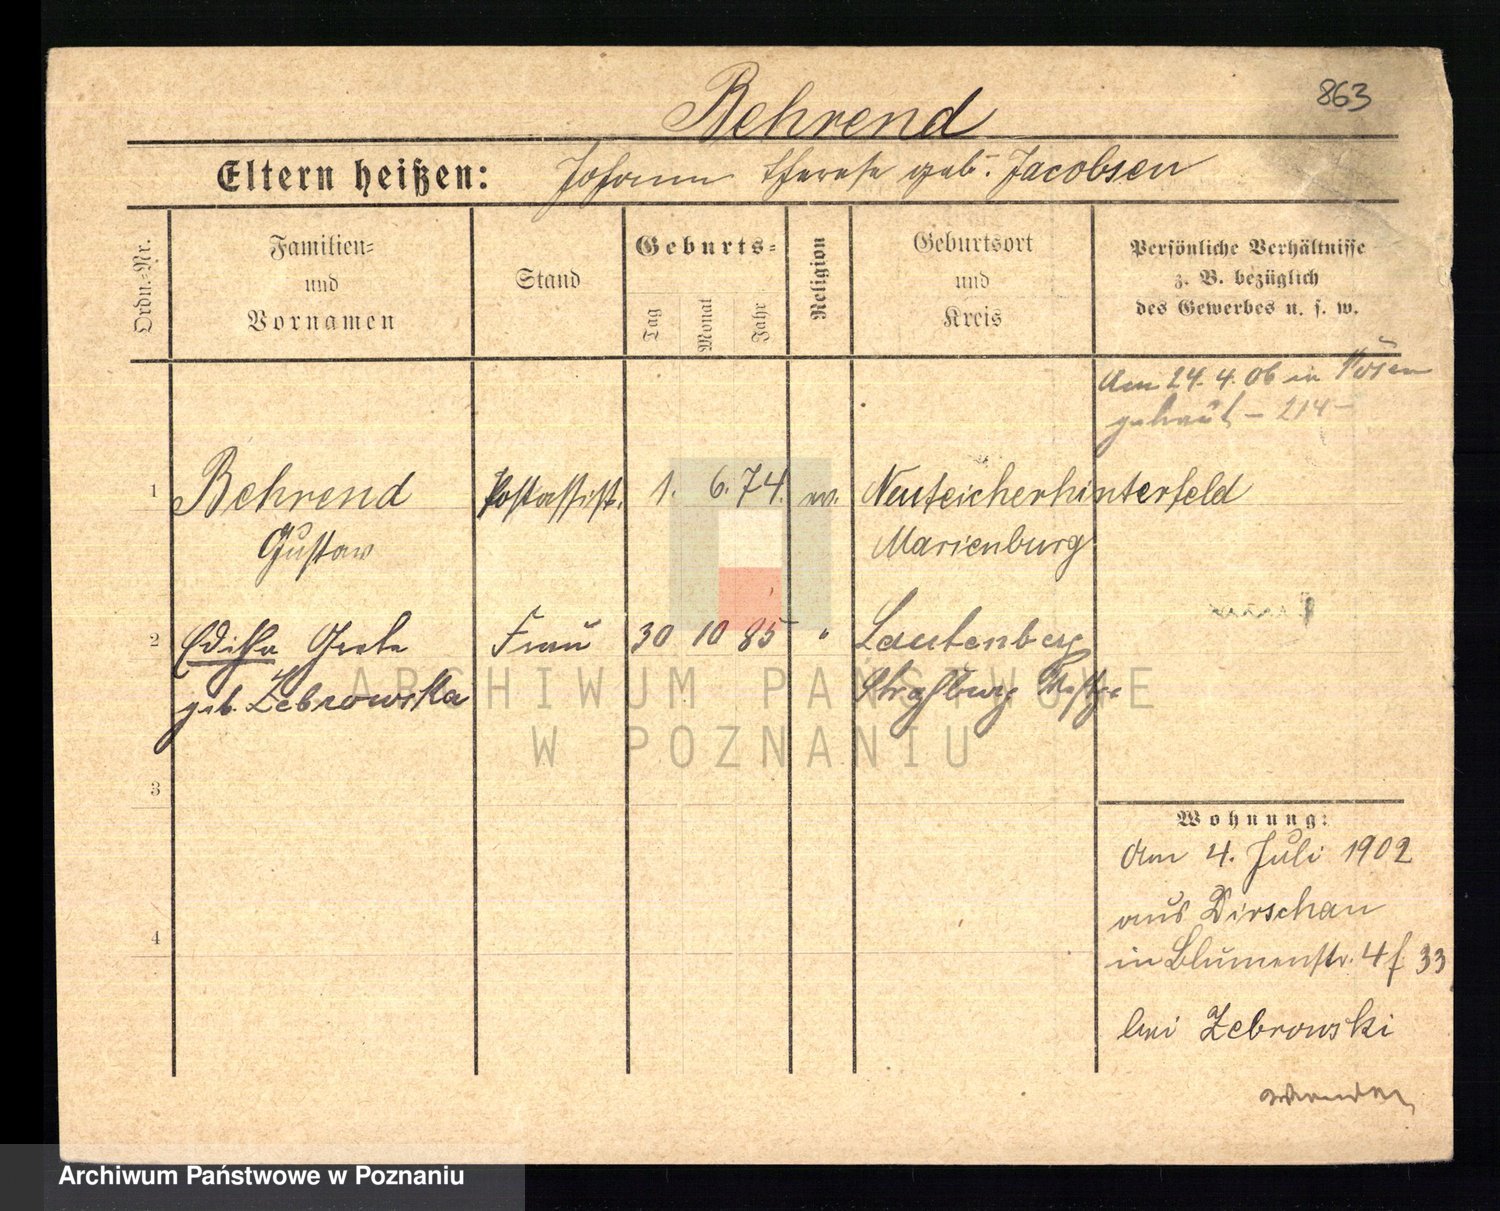 863
Behrend
Eltern heißen: Johann Therese geb. Jacobsen
Ordn.-Nr.
Familien-
und
Vornamen
Stand
Geburts-
Tag
Monat
Jahr
Religion
Geburtsort
und
Kreis
Persönliche Verhältnisse
z. B. bezüglich
des Gewerbes u. s. w.
Am 24. 4. 06 in Posen
getraut - 214 -
1 Behrend Postassist. 1. 6. 74. ev. Neuteicherhinterfeld
Gustav Marienburg
2 Editha Grete Frau 30 10 85 " Lautenberg
geb. Zebrowska Straßburg Westpr
ARCHIWUM PAŃSTWOWE
W POZNANIU
3
4
Wohnung:
Am 4. Juli 1902
aus Dirschau
in Blumenstr. 4 f. 33
bei Zebrowski
wenden
Archiwum Państwowe w Poznaniu